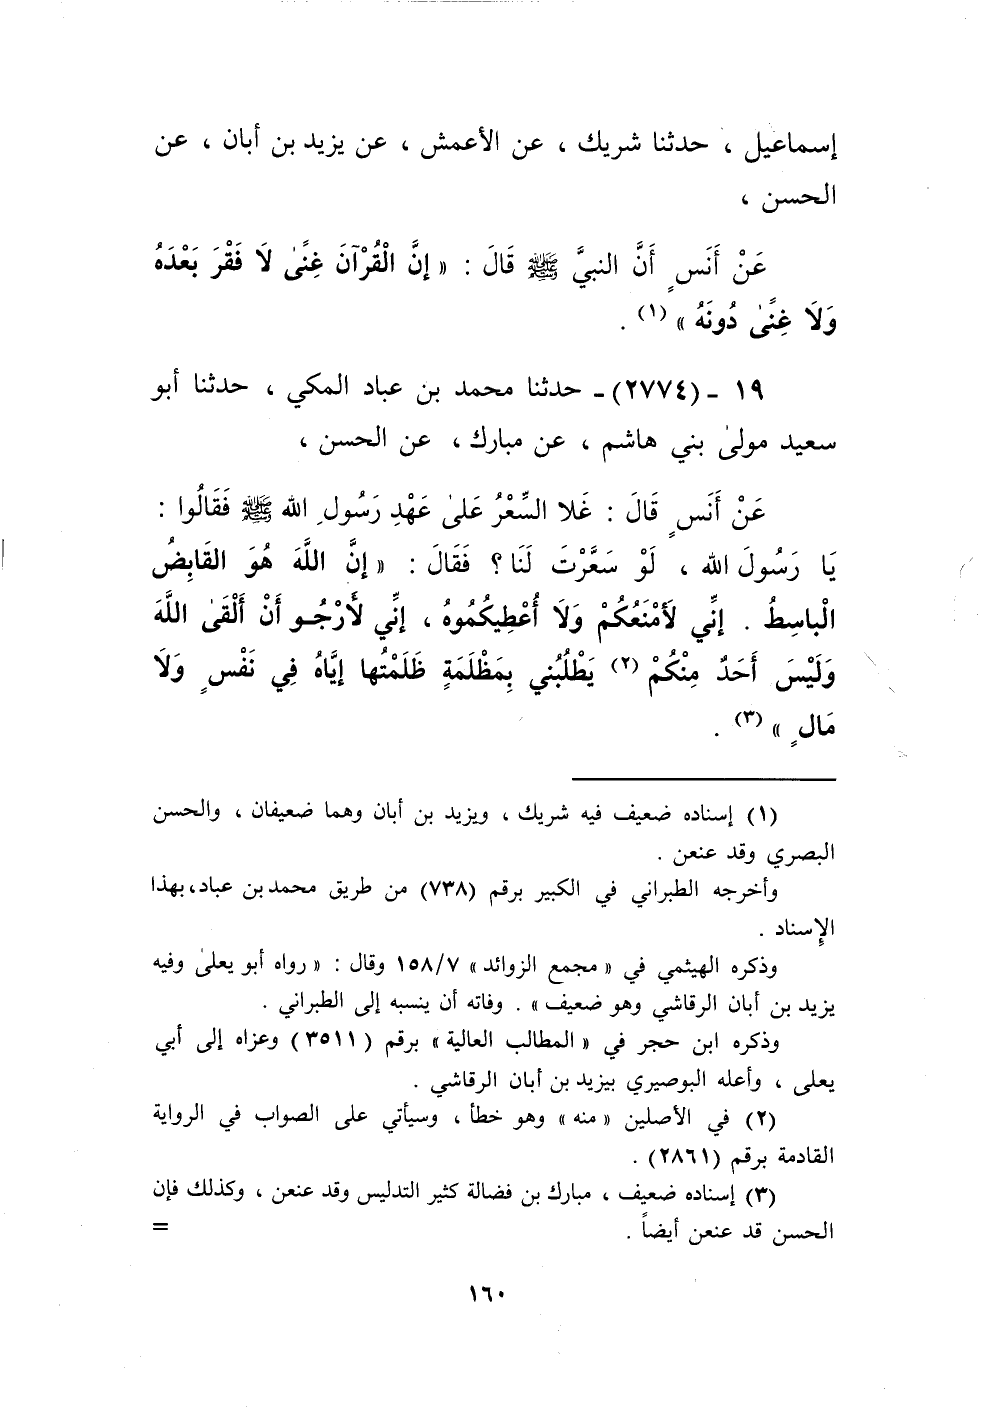 إسماعيل ، حدثنا شريك ، عن الأعمش ، عن يزيد بن أبان ، عن
الحسن ،
عَنْ أَنَسٍ أَنَّ النبيَّ ﷺ قَالَ : « إنَّ الْقُرْآنَ غِنًىٰ لَا فَقْرَ بَعْدَهُ
وَلَا غِنًىٰ دُونَهُ » (١) .
١٩ - (٢٧٧٤) - حدثنا محمد بن عباد المكي ، حدثنا أبو
سعيد مولىٰ بني هاشم ، عن مبارك ، عن الحسن ،
عَنْ أَنَسٍ قَالَ : غَلا السِّعْرُ عَلىٰ عَهْدِ رَسُولِ الله ﷺ فَقَالُوا :
يَا رَسُولَ الله ، لَوْ سَعَّرْتَ لَنَا ؟ فَقَالَ : « إنَّ اللَّهَ هُوَ القَابِضُ
الْباسِطُ . إنِّي لَأمْنَعُكُمْ وَلَا أُعْطِيكُمُوهُ ، إنِّي لَأرْجُو أَنْ أَلْقَىٰ اللَّهَ
وَلَيْسَ أَحَدٌ مِنْكُمْ (٢) يَطْلُبُني بِمَظْلَمَةٍ ظَلَمْتُها إيَّاهُ فِي نَفْسٍ وَلَا
مَالٍ » (٣) .
(١) إسناده ضعيف فيه شريك ، ويزيد بن أبان وهما ضعيفان ، والحسن
البصري وقد عنعن .
وأخرجه الطبراني في الكبير برقم (٧٣٨) من طريق محمد بن عباد، بهذا
الإسناد .
وذكره الهيثمي في « مجمع الزوائد » ١٥٨/٧ وقال : « رواه أبو يعلىٰ وفيه
يزيد بن أبان الرقاشي وهو ضعيف » . وفاته أن ينسبه إلى الطبراني .
وذكره ابن حجر في « المطالب العالية » برقم (٣٥١١) وعزاه إلى أبي
يعلى ، وأعله البوصيري بيزيد بن أبان الرقاشي .
(٢) في الأصلين « منه » وهو خطأ ، وسيأتي على الصواب في الرواية
القادمة برقم (٢٨٦١) .
(٣) إسناده ضعيف ، مبارك بن فضالة كثير التدليس وقد عنعن ، وكذلك فإن
الحسن قد عنعن أيضاً . =
١٦٠